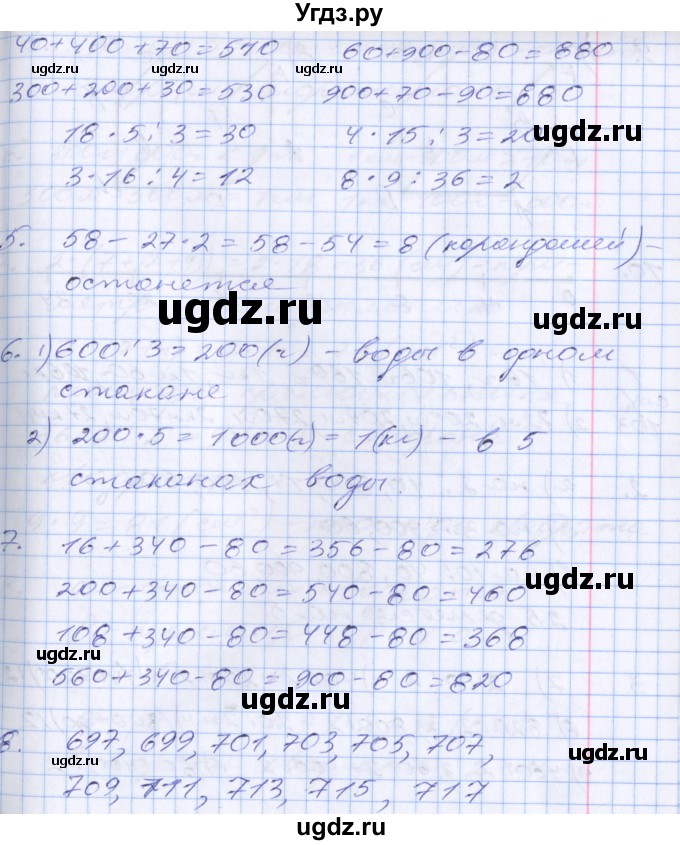 Угдз.ру
40+400+70=510 60+900-80=880
300+200+30=530 900+70-90=880
18·5:3=30 4·15:3=20
3·16:4=12 8·9:36=2
5. 58-27·2=58-54=8 (карандашей) -
останется
6. 1) 600:3=200(г) - воды в одном
стакане
2) 200·5=1000(г)=1(кг) - в 5
стаканах воды.
7. 16+340-80=356-80=276
200+340-80=540-80=460
108+340-80=448-80=368
560+340-80=900-80=820
8. 697, 699, 701, 703, 705, 707,
709, 711, 713, 715, 717
ugdz.ru
ugdz.ru
ugdz.ru
ugdz.ru
ugdz.ru
ugdz.ru
ugdz.ru
ugdz.ru
ugdz.ru
ugdz.ru
ugdz.ru
ugdz.ru
ugdz.ru